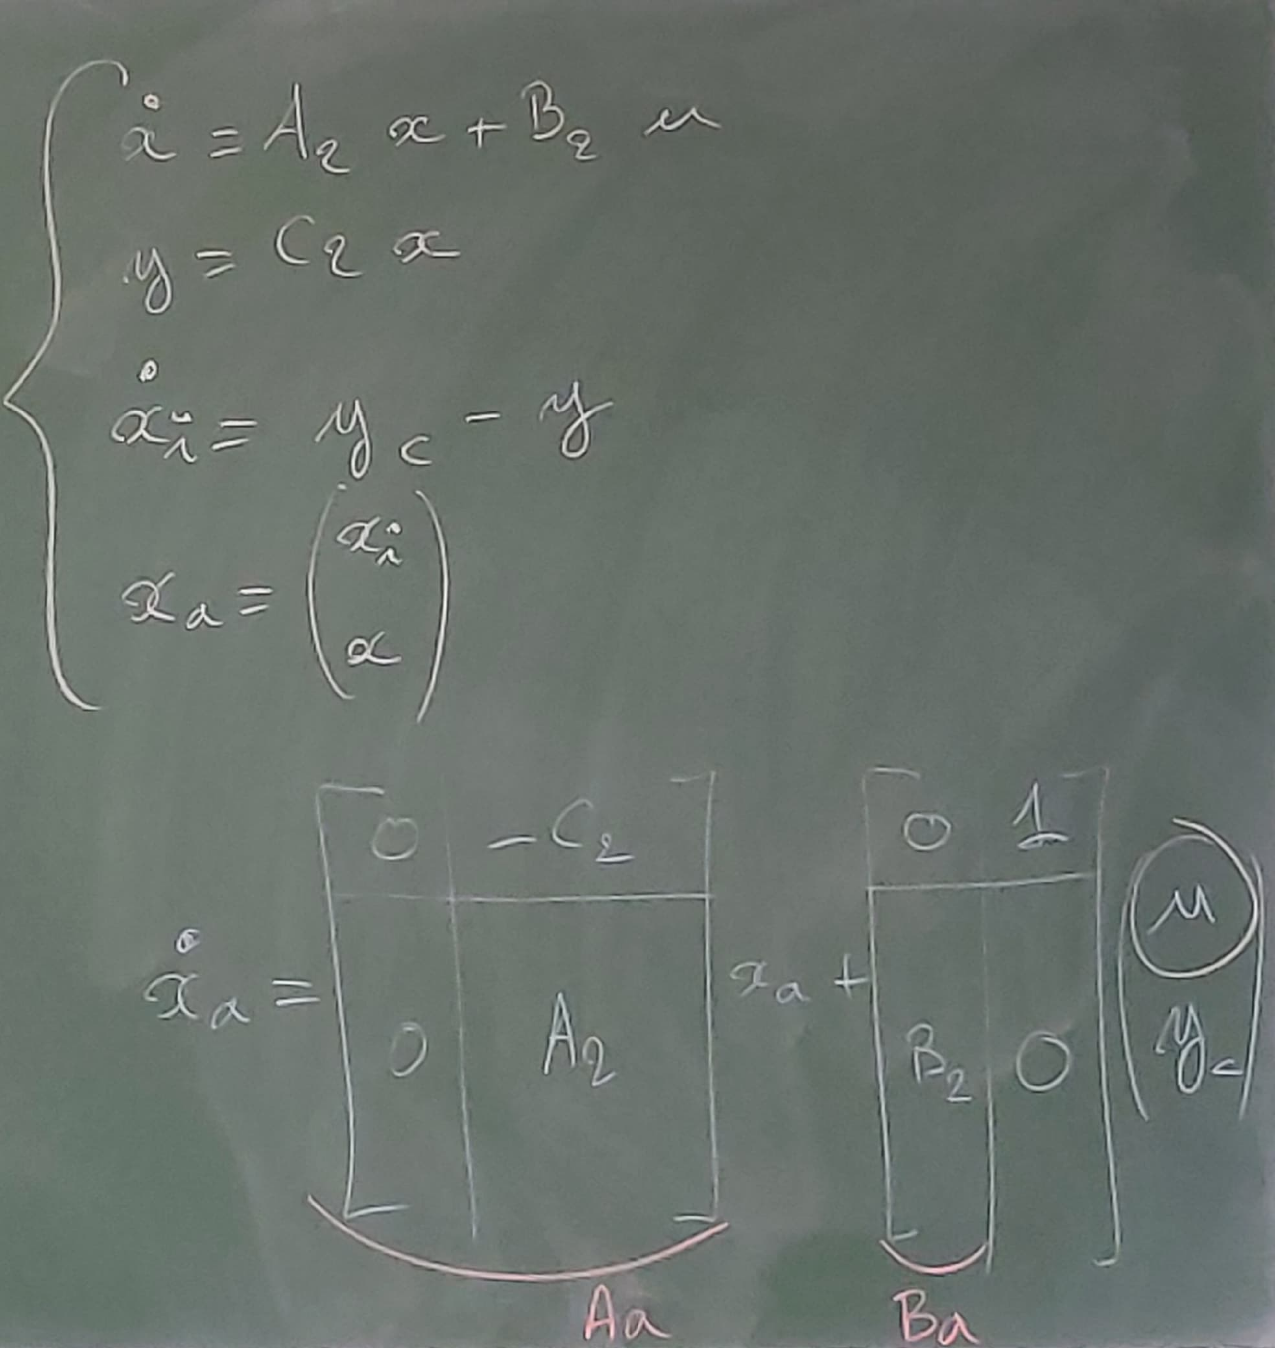 ẋ = A₂ x + B₂ u
y = C₂ x
ẋᵢ = y_c - y
x_a = (xᵢ
x)
ẋ_a = [0 -C₂
0 A₂] x_a + [0 1
B₂ 0] (u
y_c)
Aa Ba